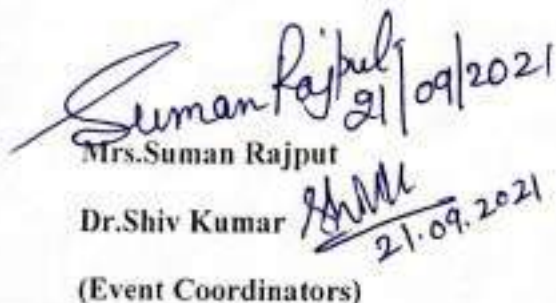 Suman Rajput
21/09/2021
Mrs.Suman Rajput
Dr.Shiv Kumar
21.09.2021
(Event Coordinators)